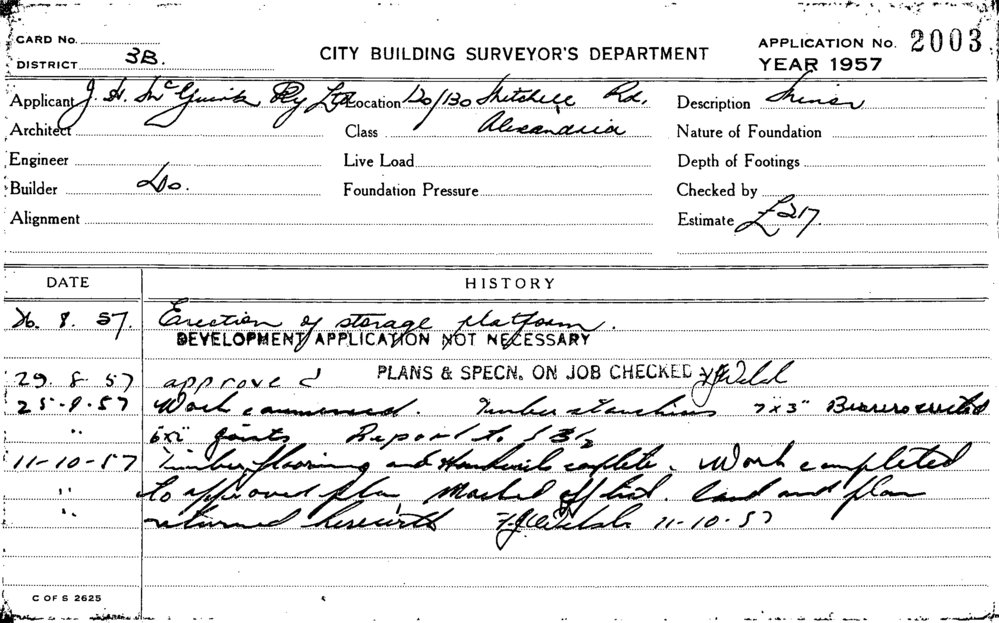 CARD No.
DISTRICT 3B.
CITY BUILDING SURVEYOR'S DEPARTMENT
APPLICATION No. 2003
YEAR 1957
Applicant J. H. Pty Ltd Location 120/130 Mitchell Rd. Description Minor
Architect Class Alexandria Nature of Foundation
Engineer Live Load Depth of Footings
Builder Do. Foundation Pressure Checked by
Alignment Estimate £217.
DATE HISTORY
26. 8. 57. Erection of storage platform.
DEVELOPMENT APPLICATION NOT NECESSARY
PLANS & SPECN. ON JOB CHECKED
29. 8 57 approved
25-9-57 Work commenced. Timber stanchions 7 x 3" Bearers erected
" 6x2" joists Report to
11-10-57 Timber flooring and Handrail complete. Work completed
" to approved plan Marked off list. Card and plan
" returned herewith 11-10-57
C OF S 2625